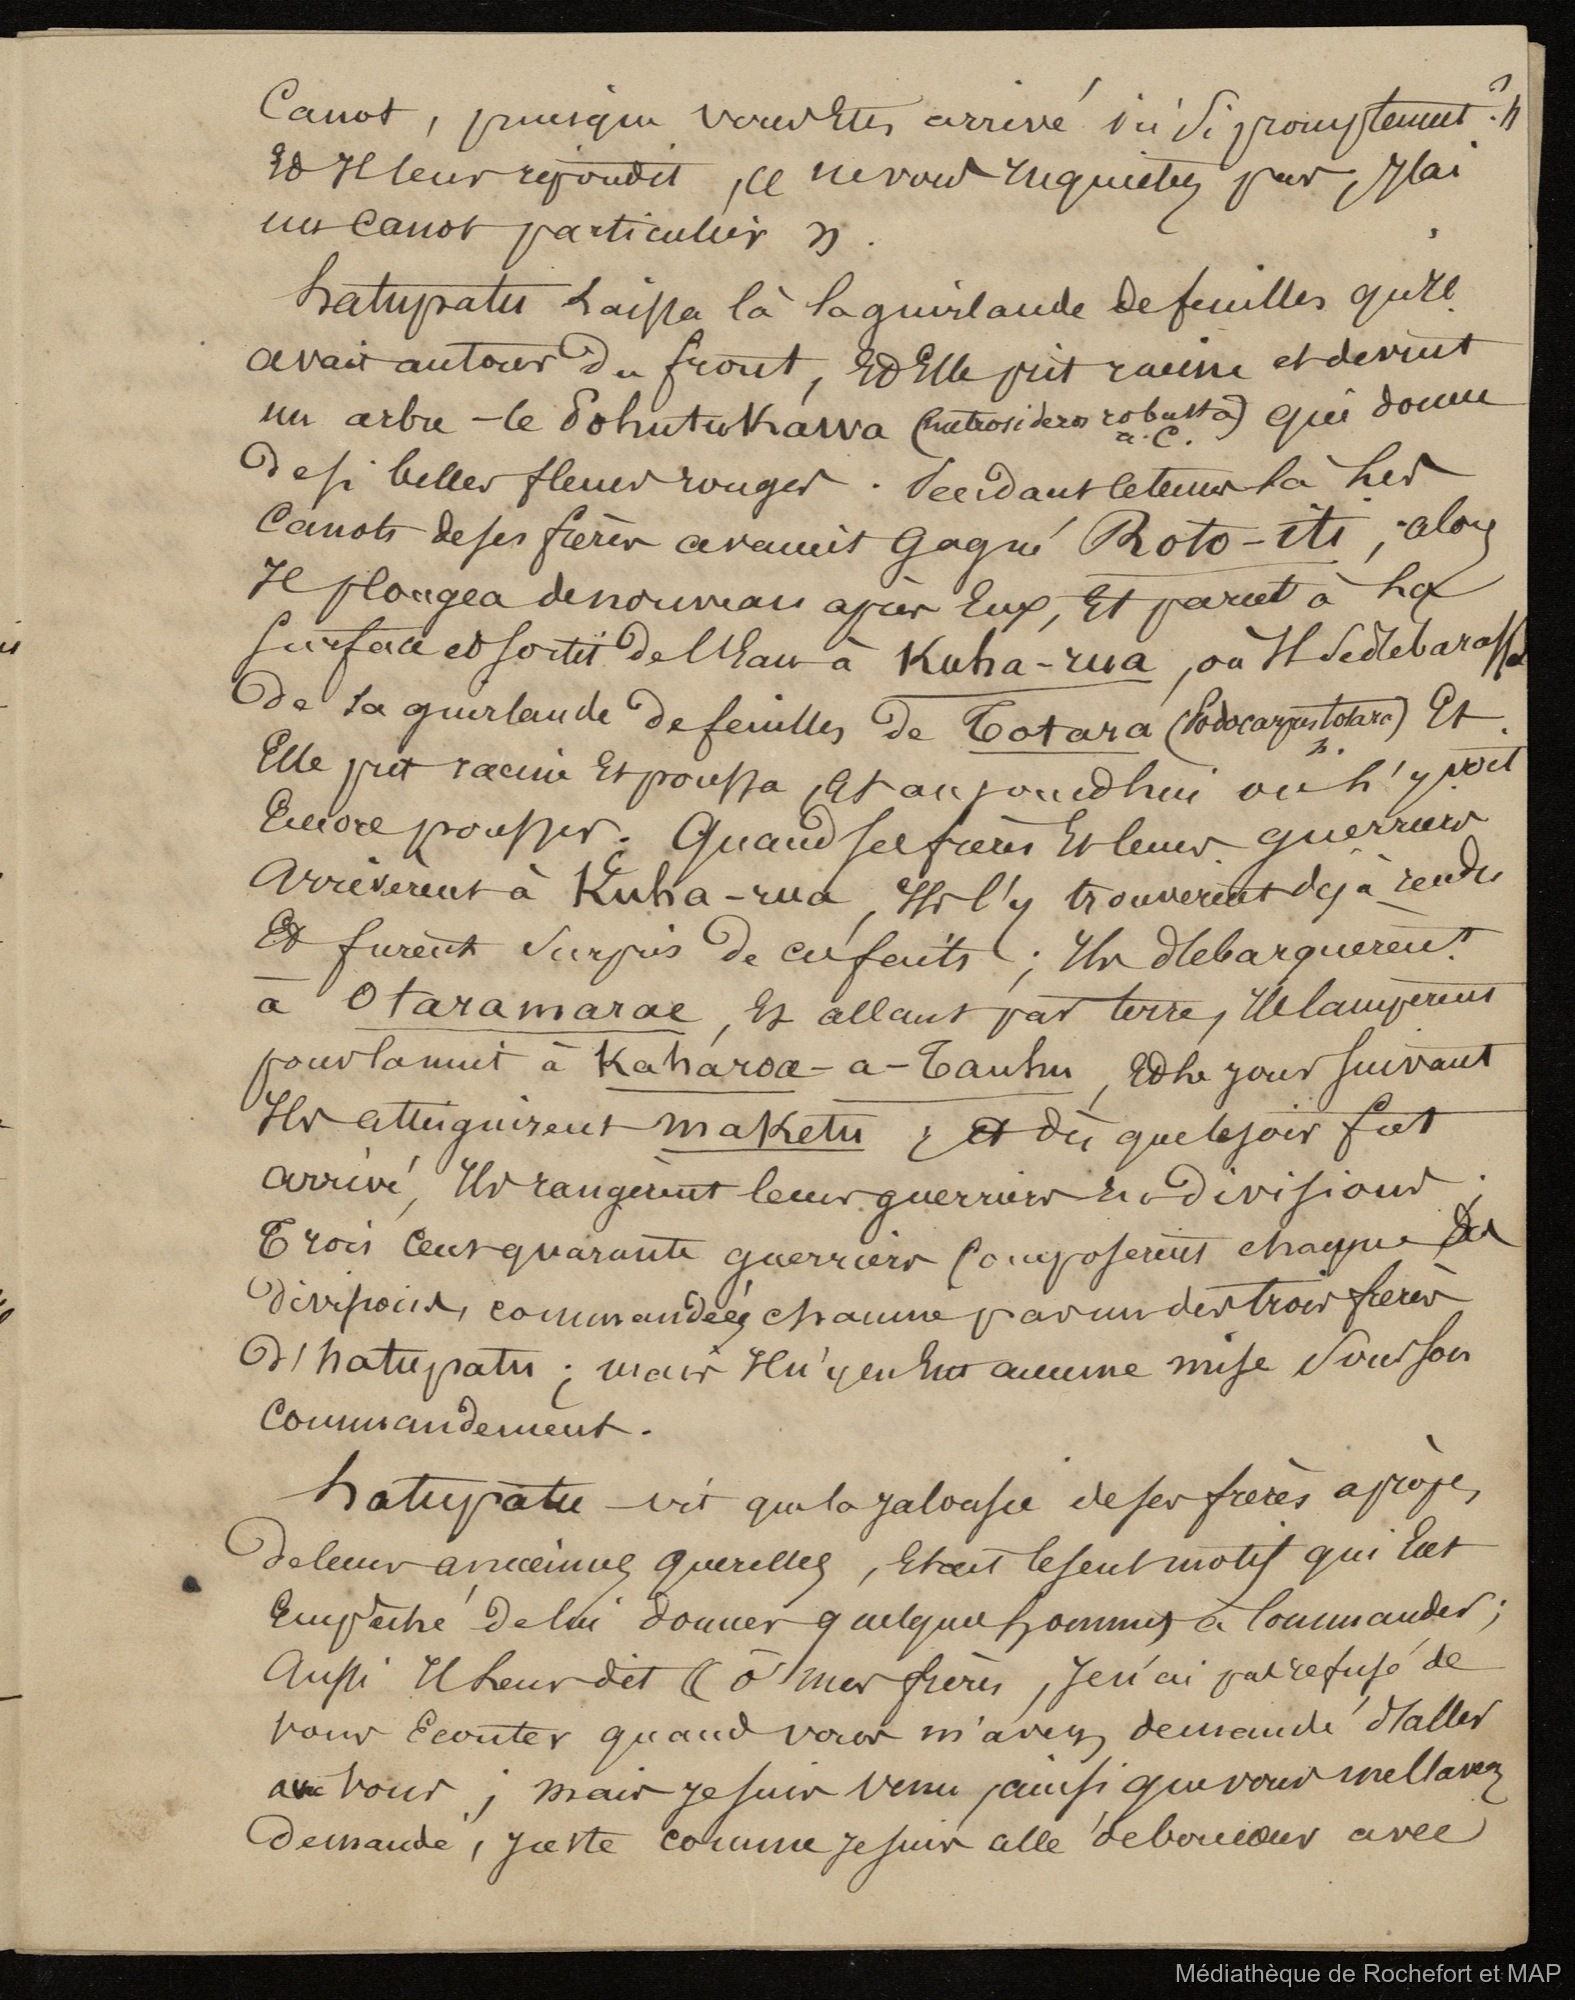 Canot, puisque vous Etes arrivé ici si promptement ? »
Et Il leur repondit, « ne vous Inquietez pas, J'ai
un Canot particulier ».
hatupatu Laissa là la guirlande de feuilles qu'Il
avait autour du front, Et Elle prit racine et devint
un arbre - le Pohutukawa (metrosideros robusta) qui donne
a. C.
de si belles fleurs rouges. Pendant le tems là les
Canots de ses frères avaient Gagné Roto-iti, alors
Il plongea de nouveau après Eux, Et parut à la
surface et sortit de l'Eau à Kuha-rua, où Il se débarassa
De sa guirlande de feuilles de Totara (Podocarpus totara) Et
n.
Elle prit racine Et poussa, Et aujourd'hui on l'y voit
Encore pousser. Quand ses frères Et leurs guerriers
Arrivèrent à Kuha-rua, Ils l'y trouverent dejà rendu
Et furent surpris de ces faits ; Ils débarquerent
à Otaramarae, Et allant par terre, Ils Camperent
pour la nuit à Kaharoa-a-Tauhu, Et le jour suivant
Ils atteignirent maketu ; Et dès que le soir fut
arrivé, Ils rangèrent leurs guerriers En divisions ;
Trois Cent quarante guerriers Composerent chaque des
divisions, commandées chacune par un des trois frères
d'hatupatu ; mais Il n'y en Eut aucune mise sous son
Commandement.
hatupatu vit que la jalousie de ses frères apropos
de leurs anciennes querelles, Etait le seul motif qui Eut
Empêché de lui donner quelques hommes à Commander ;
Aussi Il Leur dit « ô mes frères, Je n'ai pas refusé de
vous Ecouter quand vous m'avez demandé d'aller
avec vous ; mais je suis venu, ainsi que vous me l'avez
demandé, juste comme je suis allé de bon cœur avec
Médiathèque de Rochefort et MAP